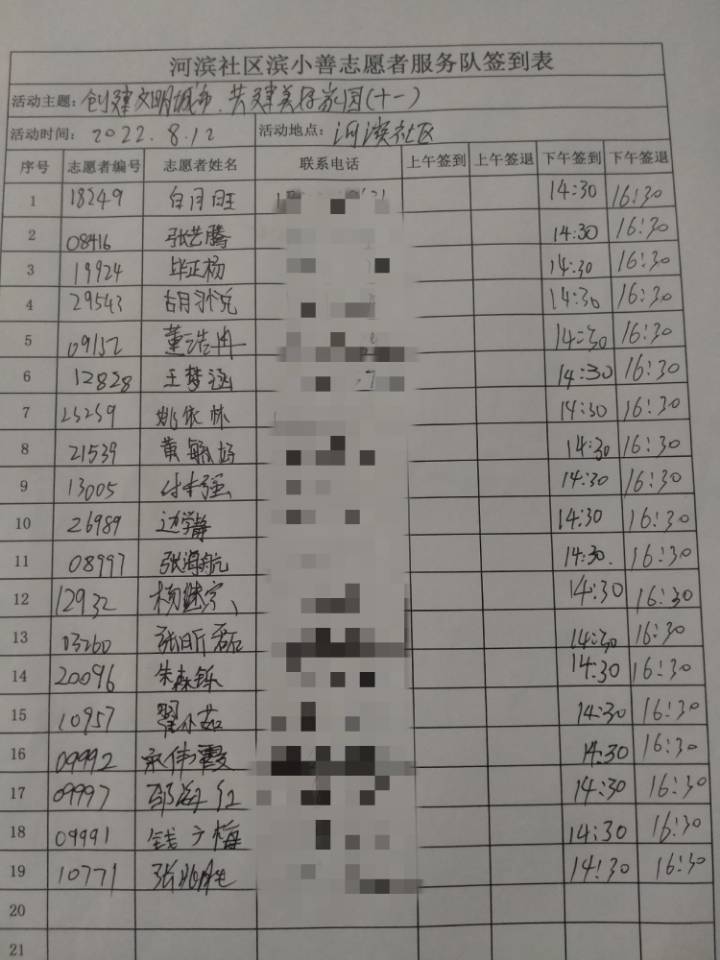 河滨社区滨小善志愿者服务队签到表
活动主题：创建文明城市、共建美好家园(十一)
活动时间：2022.8.12 活动地点：河滨社区
序号 志愿者编号 志愿者姓名 联系电话 上午签到 上午签退 下午签到 下午签退
1 18249 白月旺 14:30 16:30
2 08416 张艺腾 14:30 16:30
3 19924 毕正杨 14:30 16:30
4 29543 14:30 16:30
5 09152 董浩冉 14:30 16:30
6 12828 王梦涵 14:30 16:30
7 25259 姚依林 14:30 16:30
8 21539 黄 14:30 16:30
9 13005 14:30 16:30
10 26989 边学静 14:30 16:30
11 08997 张海航 14:30 16:30
12 12932 杨继宗 14:30 16:30
13 03260 张昕磊 14:30 16:30
14 20096 朱森铄 14:30 16:30
15 10957 翟小茹 14:30 16:30
16 09992 伟霞 14:30 16:30
17 09997 邵海红 14:30 16:30
18 09991 钱少梅 14:30 16:30
19 10771 张兆胜 14:30 16:30
20
21